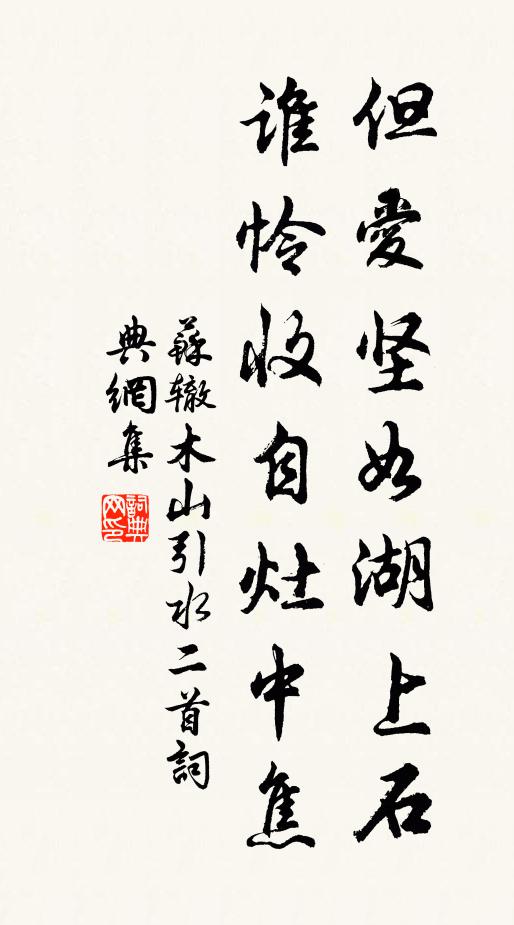 但愛坚如湖上石
谁怜收自灶中焦
蘇辙木山引水二首詞
典網集
詞典网印